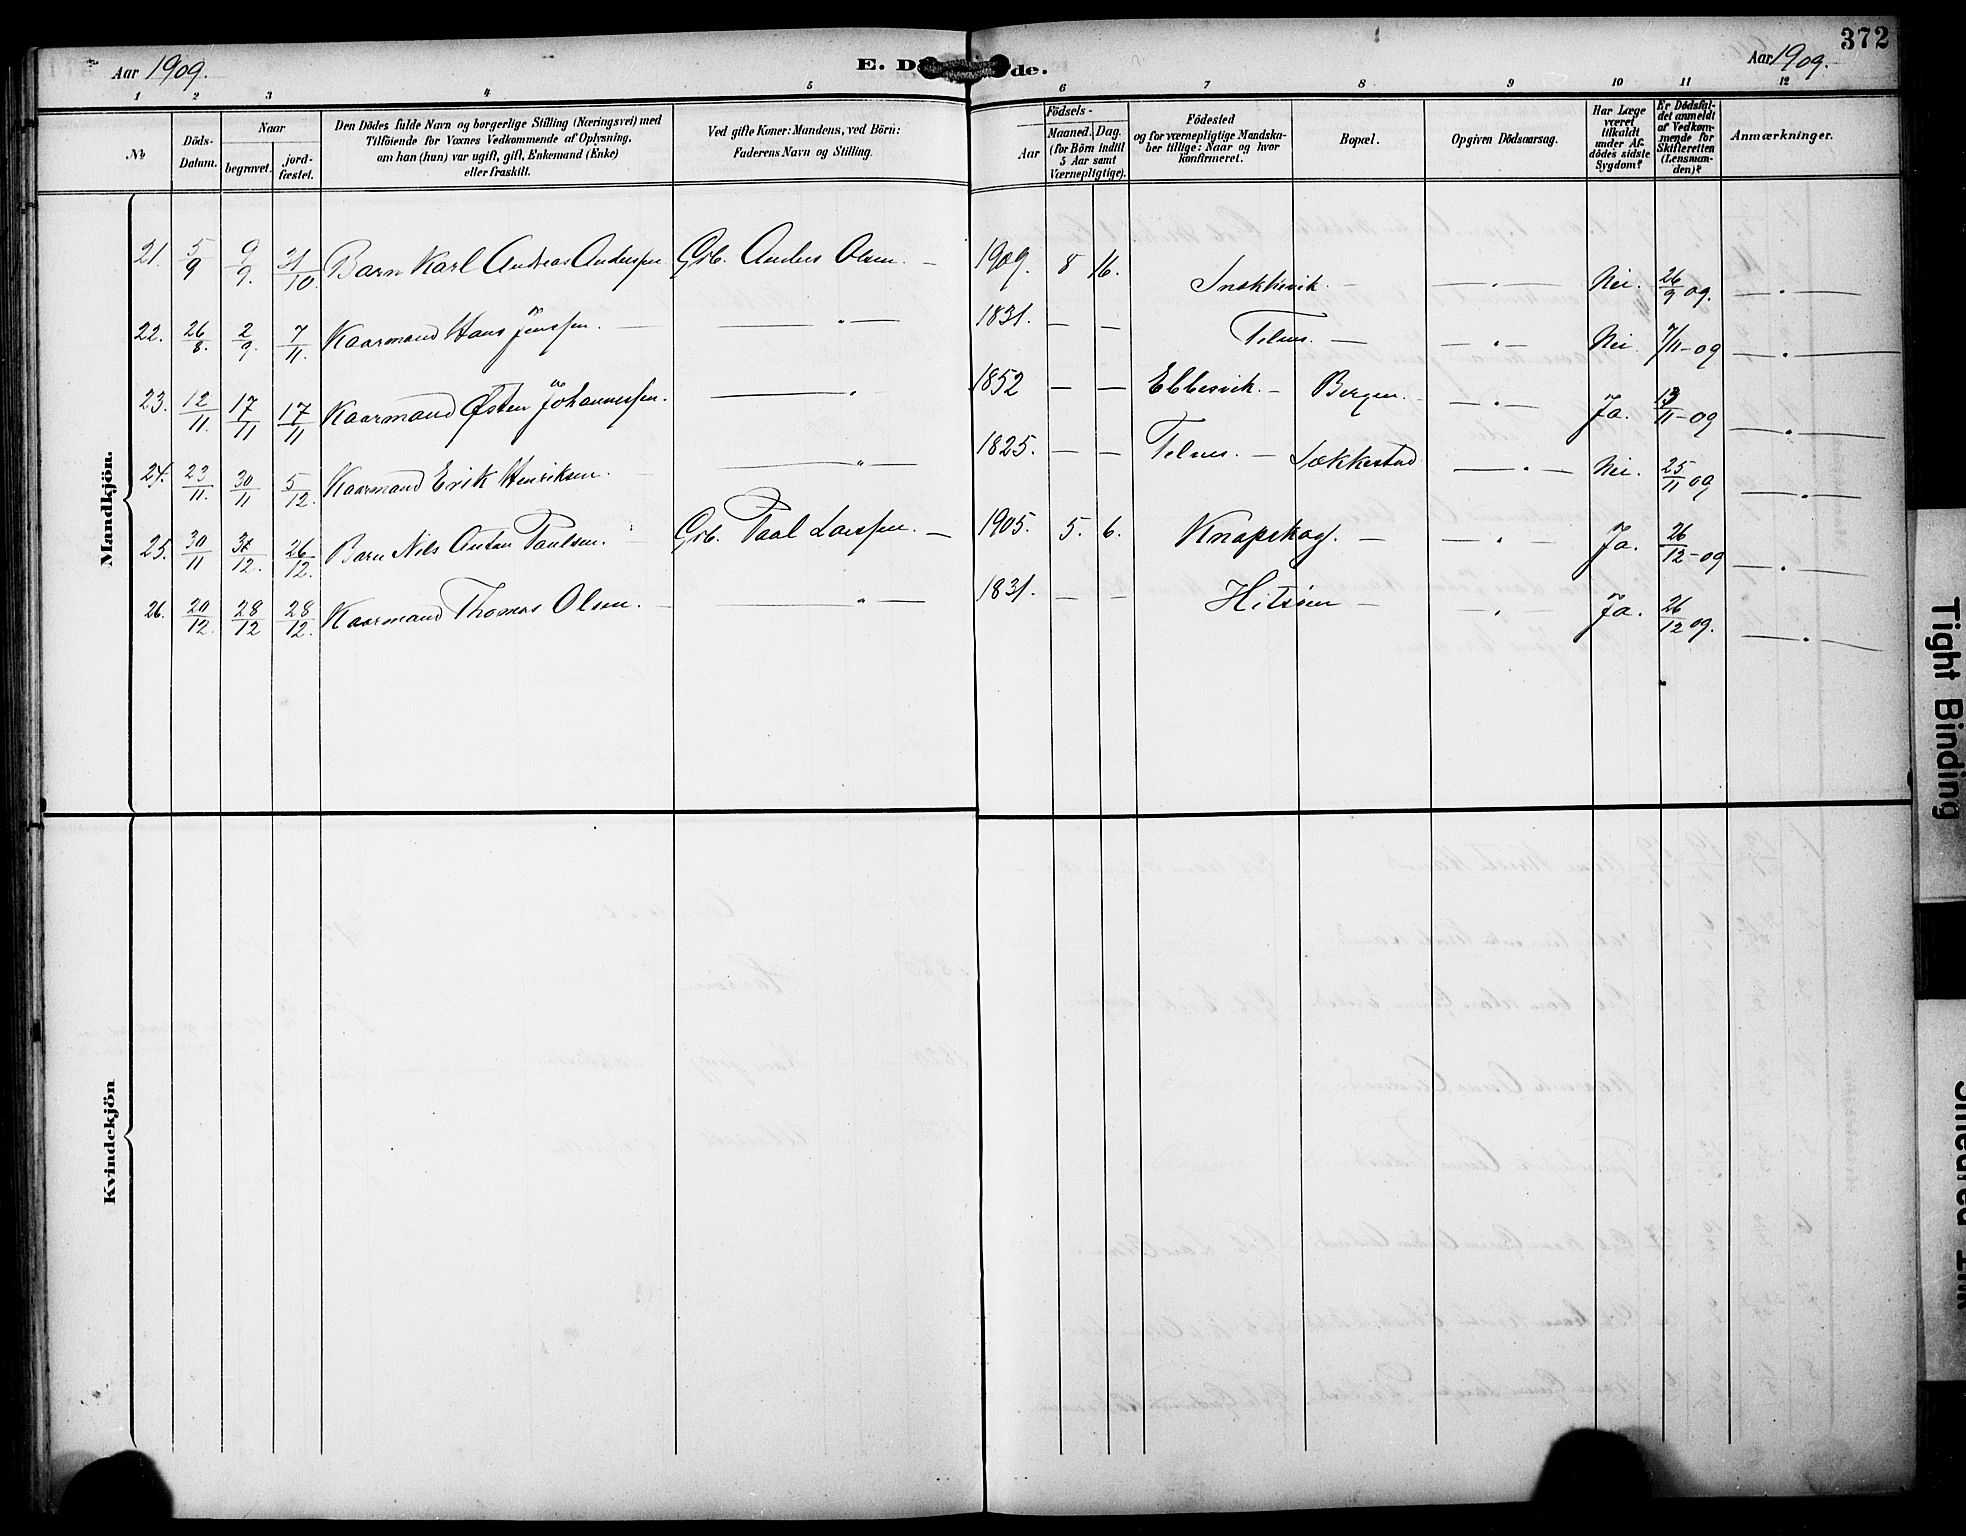 372
Aar 1909.
E. D de.
Aar 1909.
1 2 3 4 5 6 7 8 9 10 11 12
No
Döds-Datum.
Naar
begravet.
jord-fæstet.
Den Dödes fulde Navn og borgerlige Stilling (Næringsvei) med
Tilföiende for Voxnes Vedkommende af Oplysning,
om han (hun) var ugift, gift, Enkemand (Enke)
eller fraskilt.
Ved gifte Koner: Mandens, ved Börn:
Faderens Navn og Stilling.
Födsels-
Aar
Maaned. Dag.
(for Börn indtil
5 Aar samt
Værnepligtige).
Födested
og for værnepligtige Mandska-
ber tillige: Naar og hvor
konfirmeret.
Bopæl.
Opgiven Dödsaarsag.
Har Læge
været
tilkaldt
under Af-
dödes sidste
Sygdom?
Er Dödsfal-
det anmeldt
af Vedkom-
mende for
Skifteretten
(Lensman-
den)?
Anmærkninger.
Mandkjön.
21. 5/9 9/9. 31/10. Barn Karl Andreas Anderssen Grb. Anders Olsen. — 1909. 8 16. — — " — Nei. 26/9 09. — " —
22. 26/8. 2/9. 7/11. Kaarmand Hans Jenssen. — — " — 1831. — — Telnes. — — " — Nei. 7/11 - 09 — " —
23. 12/11. 17/11 17/11 Kaarmand Østen Johannessen. — " 1852 — — Ebbesvik. — Bergen. — " — Ja. 13/11 - 09 — " —
24. 23/11. 30/11 5/12. Kaarmand Erik Henriksen. — " — 1825. — — Telnes. — Lækkestad — " — Nei. 25/11 09 — " —
25. 30/11 /12. 26/12. Barn Nils Anton Paulsen. Grb. Paal Larssen. — 1905. 5. 6. Knapskog. — — " — Ja. 26/12 - 09 — " —
26. 20/12. 28/12 28/12. Kaarmand Thomas Olsen. — — " — 1831. — — Hitsøen — — " — Ja. 26/12 09. — " —
Kvindekjön
Tight Binding
Smeared Ink